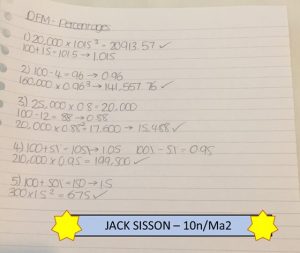 DFM - Percentages
1) 20,000 x 1.015³ = 20913.57 ✓
100+1.5=101.5 → 1.015
2) 100-4=96 → 0.96
160,000 x 0.96³ → 141,557.76 ✓
3) 25,000 x 0.8 = 20,000
100-12=88 → 0.88
20,000 x 0.88 = 17,600 → 15,488 ✓
4) 100+5%=105% → 1.05 100%-5%=0.95
210,000 x 0.95 = 199,500 ✓
5) 100+50%=150 → 1.5
300 x 1.5² = 675 ✓
JACK SISSON – 10n/Ma2